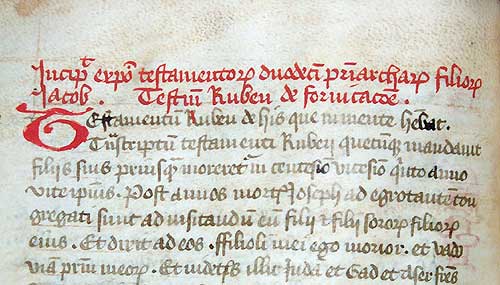 Incip̄t expo͞ testamentoꝝ duodeci͞ pr̄iarchaꝝ filioꝝ
Jacob . Testm̄ Ruben de fornicac̄oe .
Testamentū Ruben de his que in mente hēbat .
Trāscriptū testamenti Ruben quecūqꝫ mandauit
filijs suis priusqꝫ̄ moreret᷑ in centesīo vicesīo qu̇to anno
vite ip̄ius . Post annos mortꝭ Joseph ad egrotantē con
gregati sunt ad visitandū eū filij ⁊ filij soroꝝ filioꝝ
eius . Et dixit ad eos . ffilioli mei ego morior . et vado
viā pr̄m meoꝝ . Et videt̄s illic Judā et Gad et Aser fr̄es